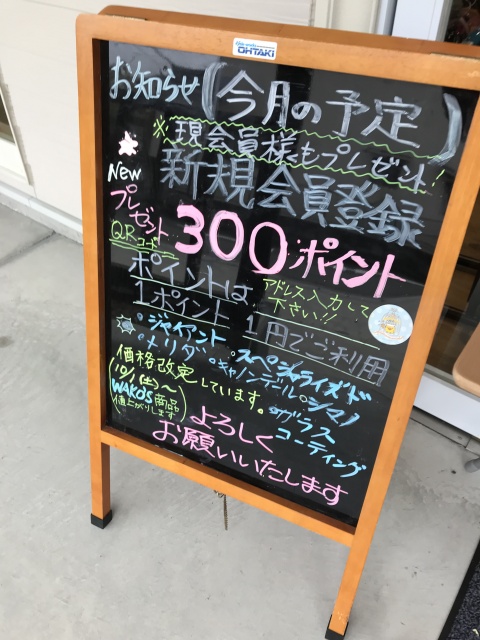 OHTAKI
お知らせ(今月の予定)
※現会員様もプレゼント!
New 新規会員登録
プレゼント 300ポイント
QRコード アドレス入力して下さい!!
ポイントは
1ポイント 1円でご利用
・ジャイアント ・スペシャライズド
・メリダ ・キャノンデール ・シマノ
価格改定しています。 ・ガラスコーティング
(10/1(土)~
WAKO'S商品
値上がりします)
よろしく
お願いいたします